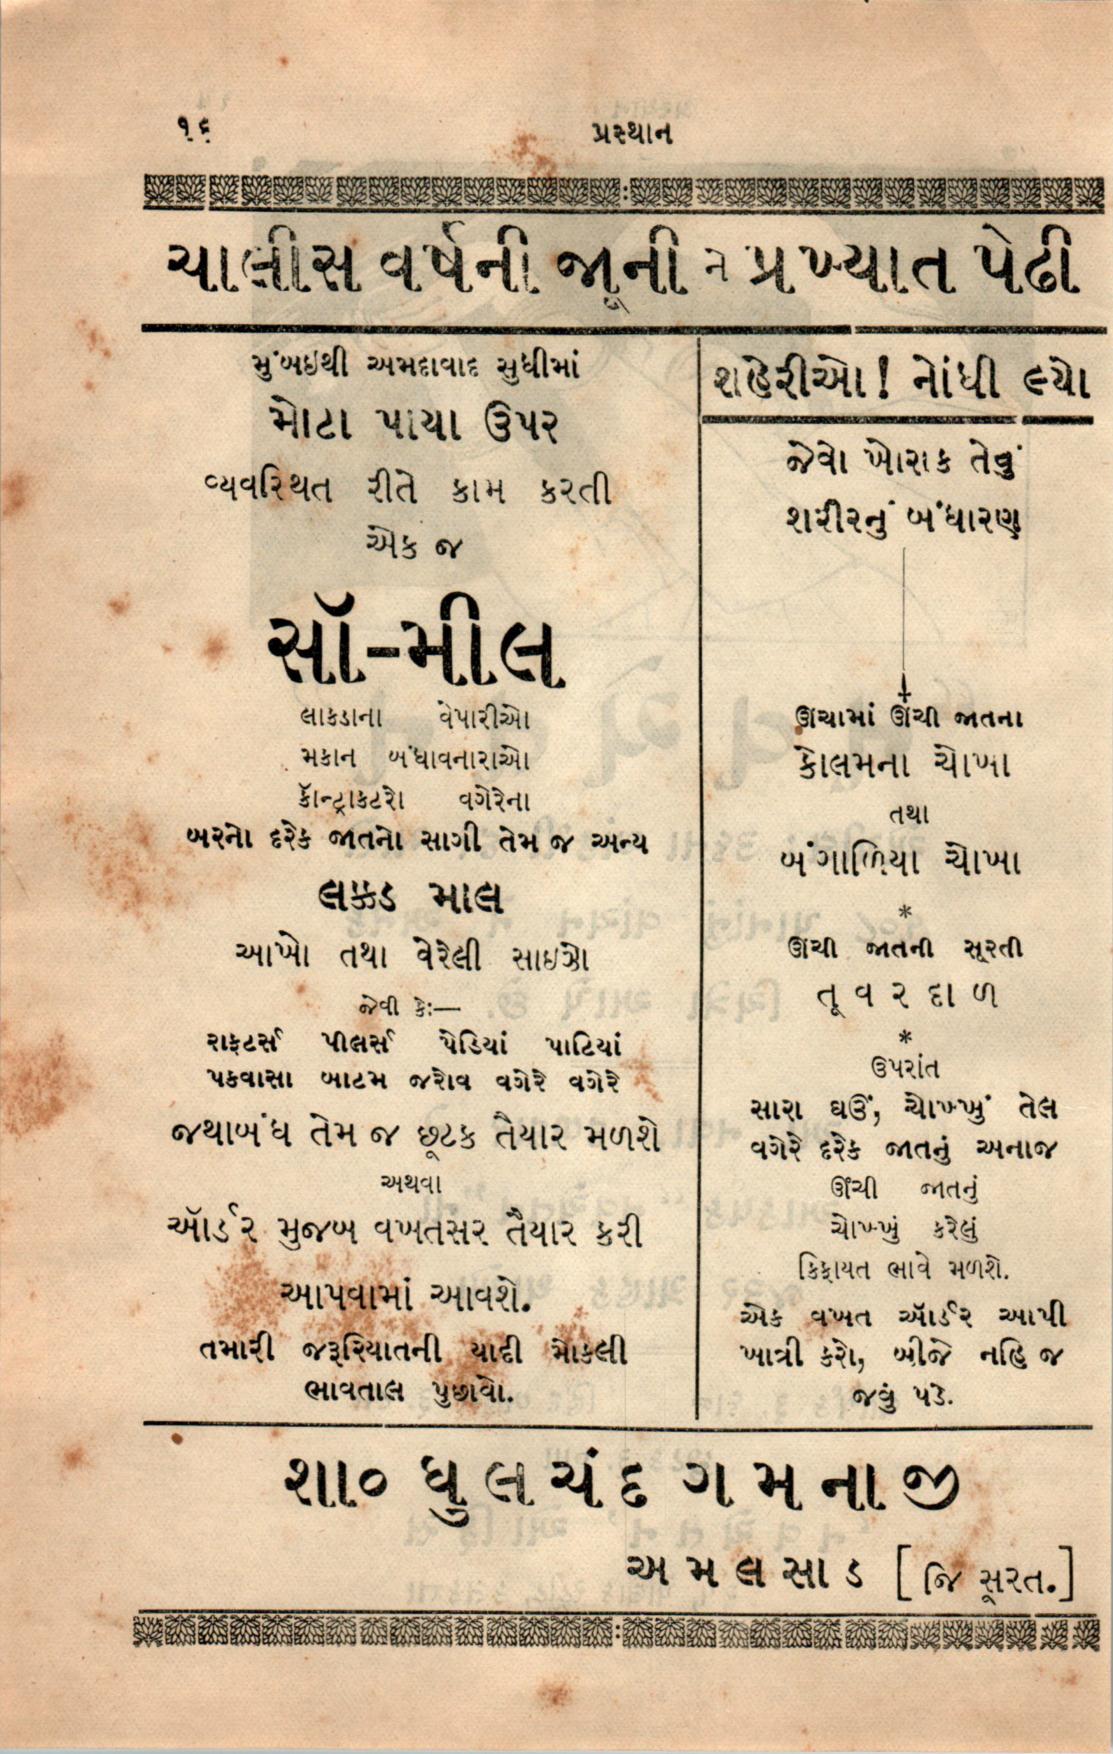 ૧૬
પ્રસ્થાન
ચાલીસ વર્ષની જૂની ને પ્રખ્યાત પેઢી
મુંબઇથી અમદાવાદ સુધીમાં
મોટા પાયા ઉપર
વ્યવસ્થિત રીતે કામ કરતી
એક જ
સૉ-મીલ
લાકડાના વેપારીઓ
મકાન બંધાવનારાઓ
કૅાન્ટ્રાક્ટરો વગેરેના
બરનો દરેક જાતનો સાગી તેમ જ અન્ય
લક્કડ માલ
આખો તથા વેરેલી સાઇઝો
જેવી કેઃ—
રાફ્ટર્સ પીલર્સ પેડિયાં પાટિયાં
પકવાસા બાટમ જરોવ વગેરે વગેરે
જથાબંધ તેમ જ છૂટક તૈયાર મળશે
અથવા
ઑર્ડર મુજબ વખતસર તૈયાર કરી
આપવામાં આવશે.
તમારી જરૂરિયાતની યાદી મોકલી
ભાવતાલ પુછાવો.
શહેરીઓ! નોંધી લ્યો
જેવો ખોરાક તેવું
શરીરનું બંધારણ
ઊંચામાં ઊંચી જાતના
કોલમના ચોખા
તથા
બંગાળિયા ચોખા
*
ઊંચી જાતની સૂરતી
તૂ વ ર દા ળ
*
ઉપરાંત
સારા ઘઉં, ચોખ્ખું તેલ
વગેરે દરેક જાતનું અનાજ
ઊંચી જાતનું
ચોખ્ખું કરેલું
કિફાયત ભાવે મળશે.
એક વખત ઑર્ડર આપી
ખાત્રી કરો, બીજે નહિ જ
જવું પડે.
શા૦ ધુ લ ચં દ ગ મ ના જી
અ મ લ સા ડ [ જિ સૂરત. ]